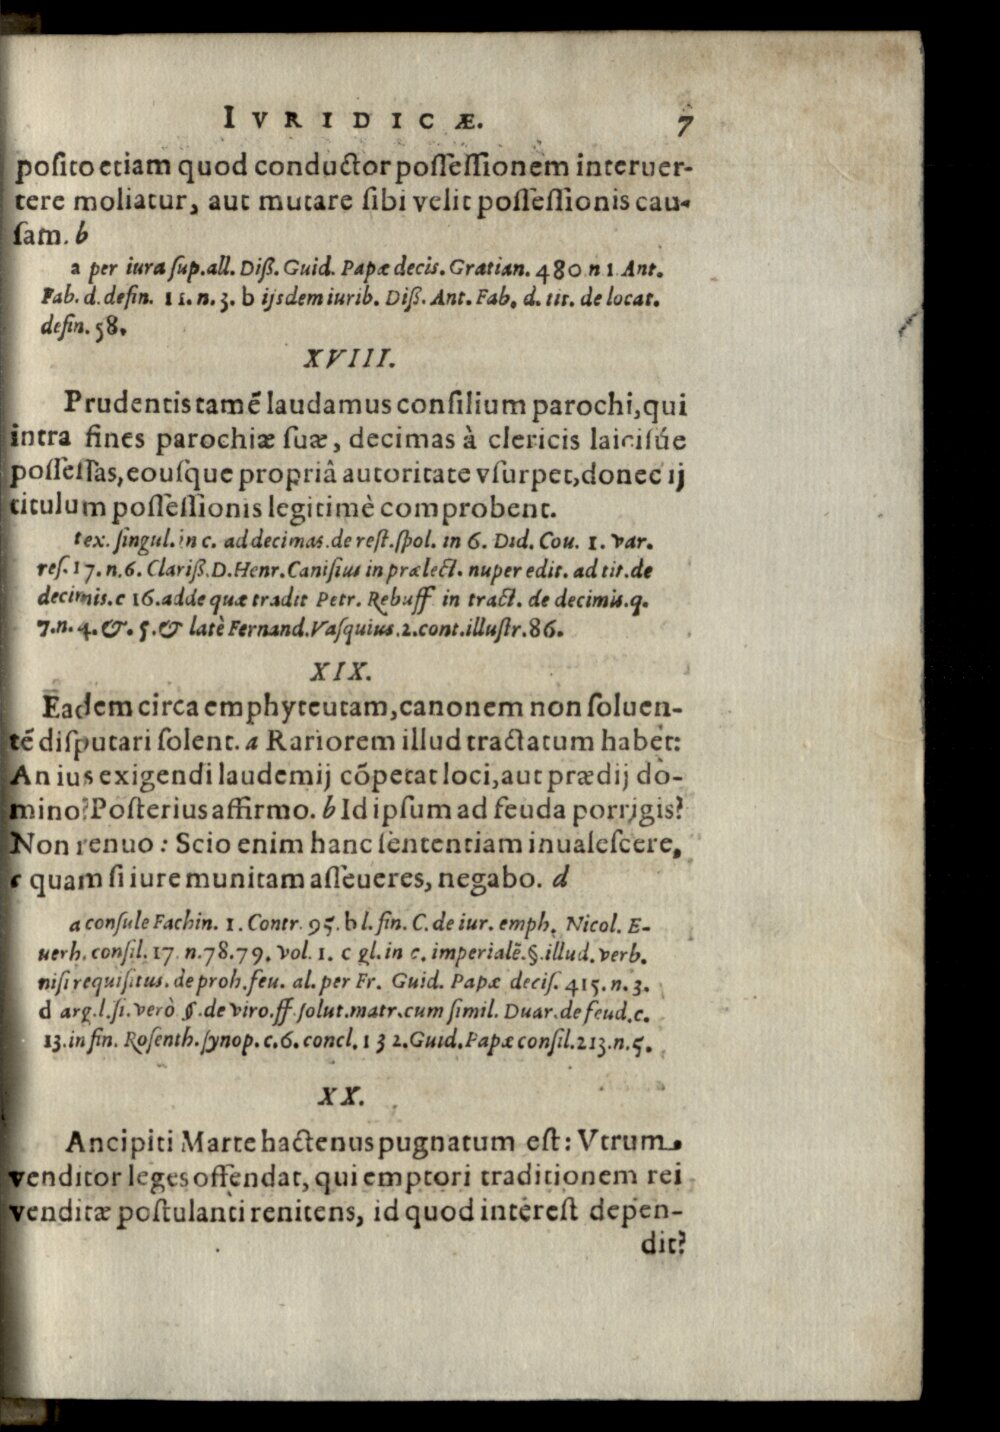 IVRIDICÆ. 7
posito etiam quod conductor possessionem interuer-
tere moliatur, aut mutare sibi velit possessionis cau-
sam. b
a per iura sup. all. Diß. Guid. Papæ decis. Gratian. 480 n 1 Ant.
Fab. d. defin. 11. n. 3. b ijsdem iurib. Diß. Ant. Fab. d. tit. de locat.
defin. 58.
XVIII.
Prudentis tamẽ laudamus consilium parochi, qui
intra fines parochiæ suæ, decimas à clericis laicisúe
possessas, eousque propriâ autoritate vsurpet, donec ij
titulum possessionis legitimè comprobent.
tex. singul. in c. ad decimas. de rest. spol. in 6. Did. Cou. 1. var.
res. 17. n. 6. Clariß. D. Henr. Canisius in prælect. nuper edit. ad tit. de
decimis. c 16. adde quæ tradit Petr. Rebuff in tract. de decimis. q.
7. n. 4. &. 5. & latè Fernand. Vasquius. 2. cont. illustr. 86.
XIX.
Eadem circa emphyteutam, canonem non soluen-
tẽ disputari solent. a Rariorem illud tractatum habet:
An ius exigendi laudemij cõpetat loci, aut prædij do-
mino? Posterius affirmo. b Id ipsum ad feuda porrigis?
Non renuo: Scio enim hanc sententiam inualescere,
c quam si iure munitam asseueres, negabo. d
a consule Fachin. 1. Contr. 95. b l. fin. C. de iur. emph. Nicol. E-
uerh. consil. 17. n. 78. 79. vol. 1. c gl. in c. imperialẽ. §. illud. verb.
nisi requisitus. de proh. feu. al. per Fr. Guid. Papæ decis. 415. n. 3.
d arg. l. si. verò §. de viro. ff. solut. matr. cum simil. Duar. de feud. c.
13. in fin. Rosenth. synop. c. 6. concl. 132. Guid. Papæ consil. 213. n. 5.
XX.
Ancipiti Marte hactenus pugnatum est: Vtrum
venditor leges offendat, qui emptori traditionem rei
venditæ postulanti renitens, id quod interest depen-
dit?